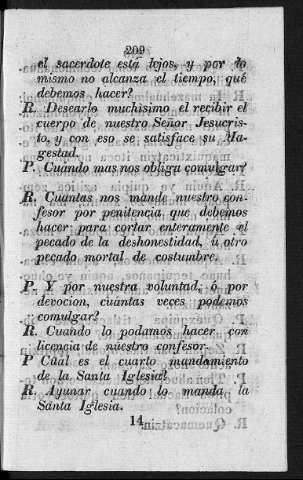 209
el sacerdote está lejos, y por lo
mismo no alcanza el tiempo, qué
debemos hacer?
R. Desearlo muchisimo el recibir el
cuerpo de nuestro Señor Jesucris-
to, y con eso se satisface su Ma-
gestad.
P. Cuando mas nos obliga comulgar?
R. Cuantas nos mande nuestro con-
fesor por penitencia que debemos
hacer para cortar enteramente el
pecado de la deshonestidad, ú otro
pecado mortal de costumbre.
P. Y por nuestra voluntad, ó por
devocion, cuántas veces podemos
comulgar?
R. Cuando lo podamos hacer con
licencia de nuestro confesor.
P Cuál es el cuarto mandamiento
de la Santa Iglesia?
R. Ayunar cuando lo manda la
Santa Iglesia.
14